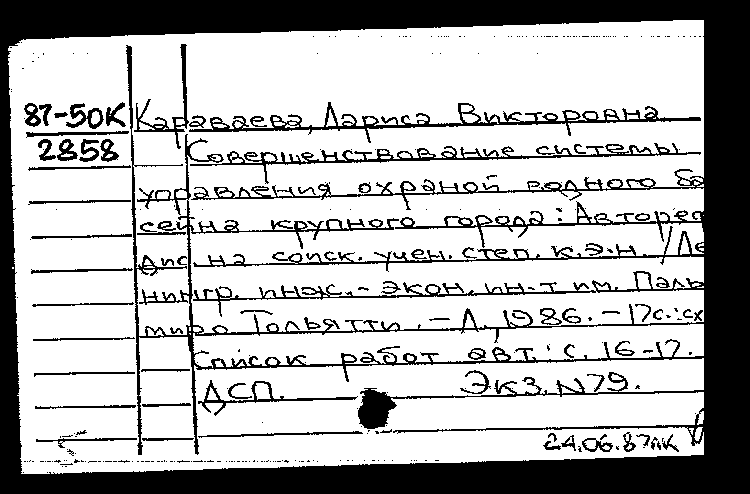 87-50К Караваева, Лариса Викторовна
2858 Совершенствование системы
управления охраной водного ба
сейна крупного города: Автореф
дис. на соиск. учен. степ. к.э.н. / Ле
нингр. инж.-экон. ин-т им. Паль
миро Тольятти. - Л., 1986. - 17с.: сх
Список работ авт.: с. 16-17.
ДСП. Экз. N79.
24.06.87лк